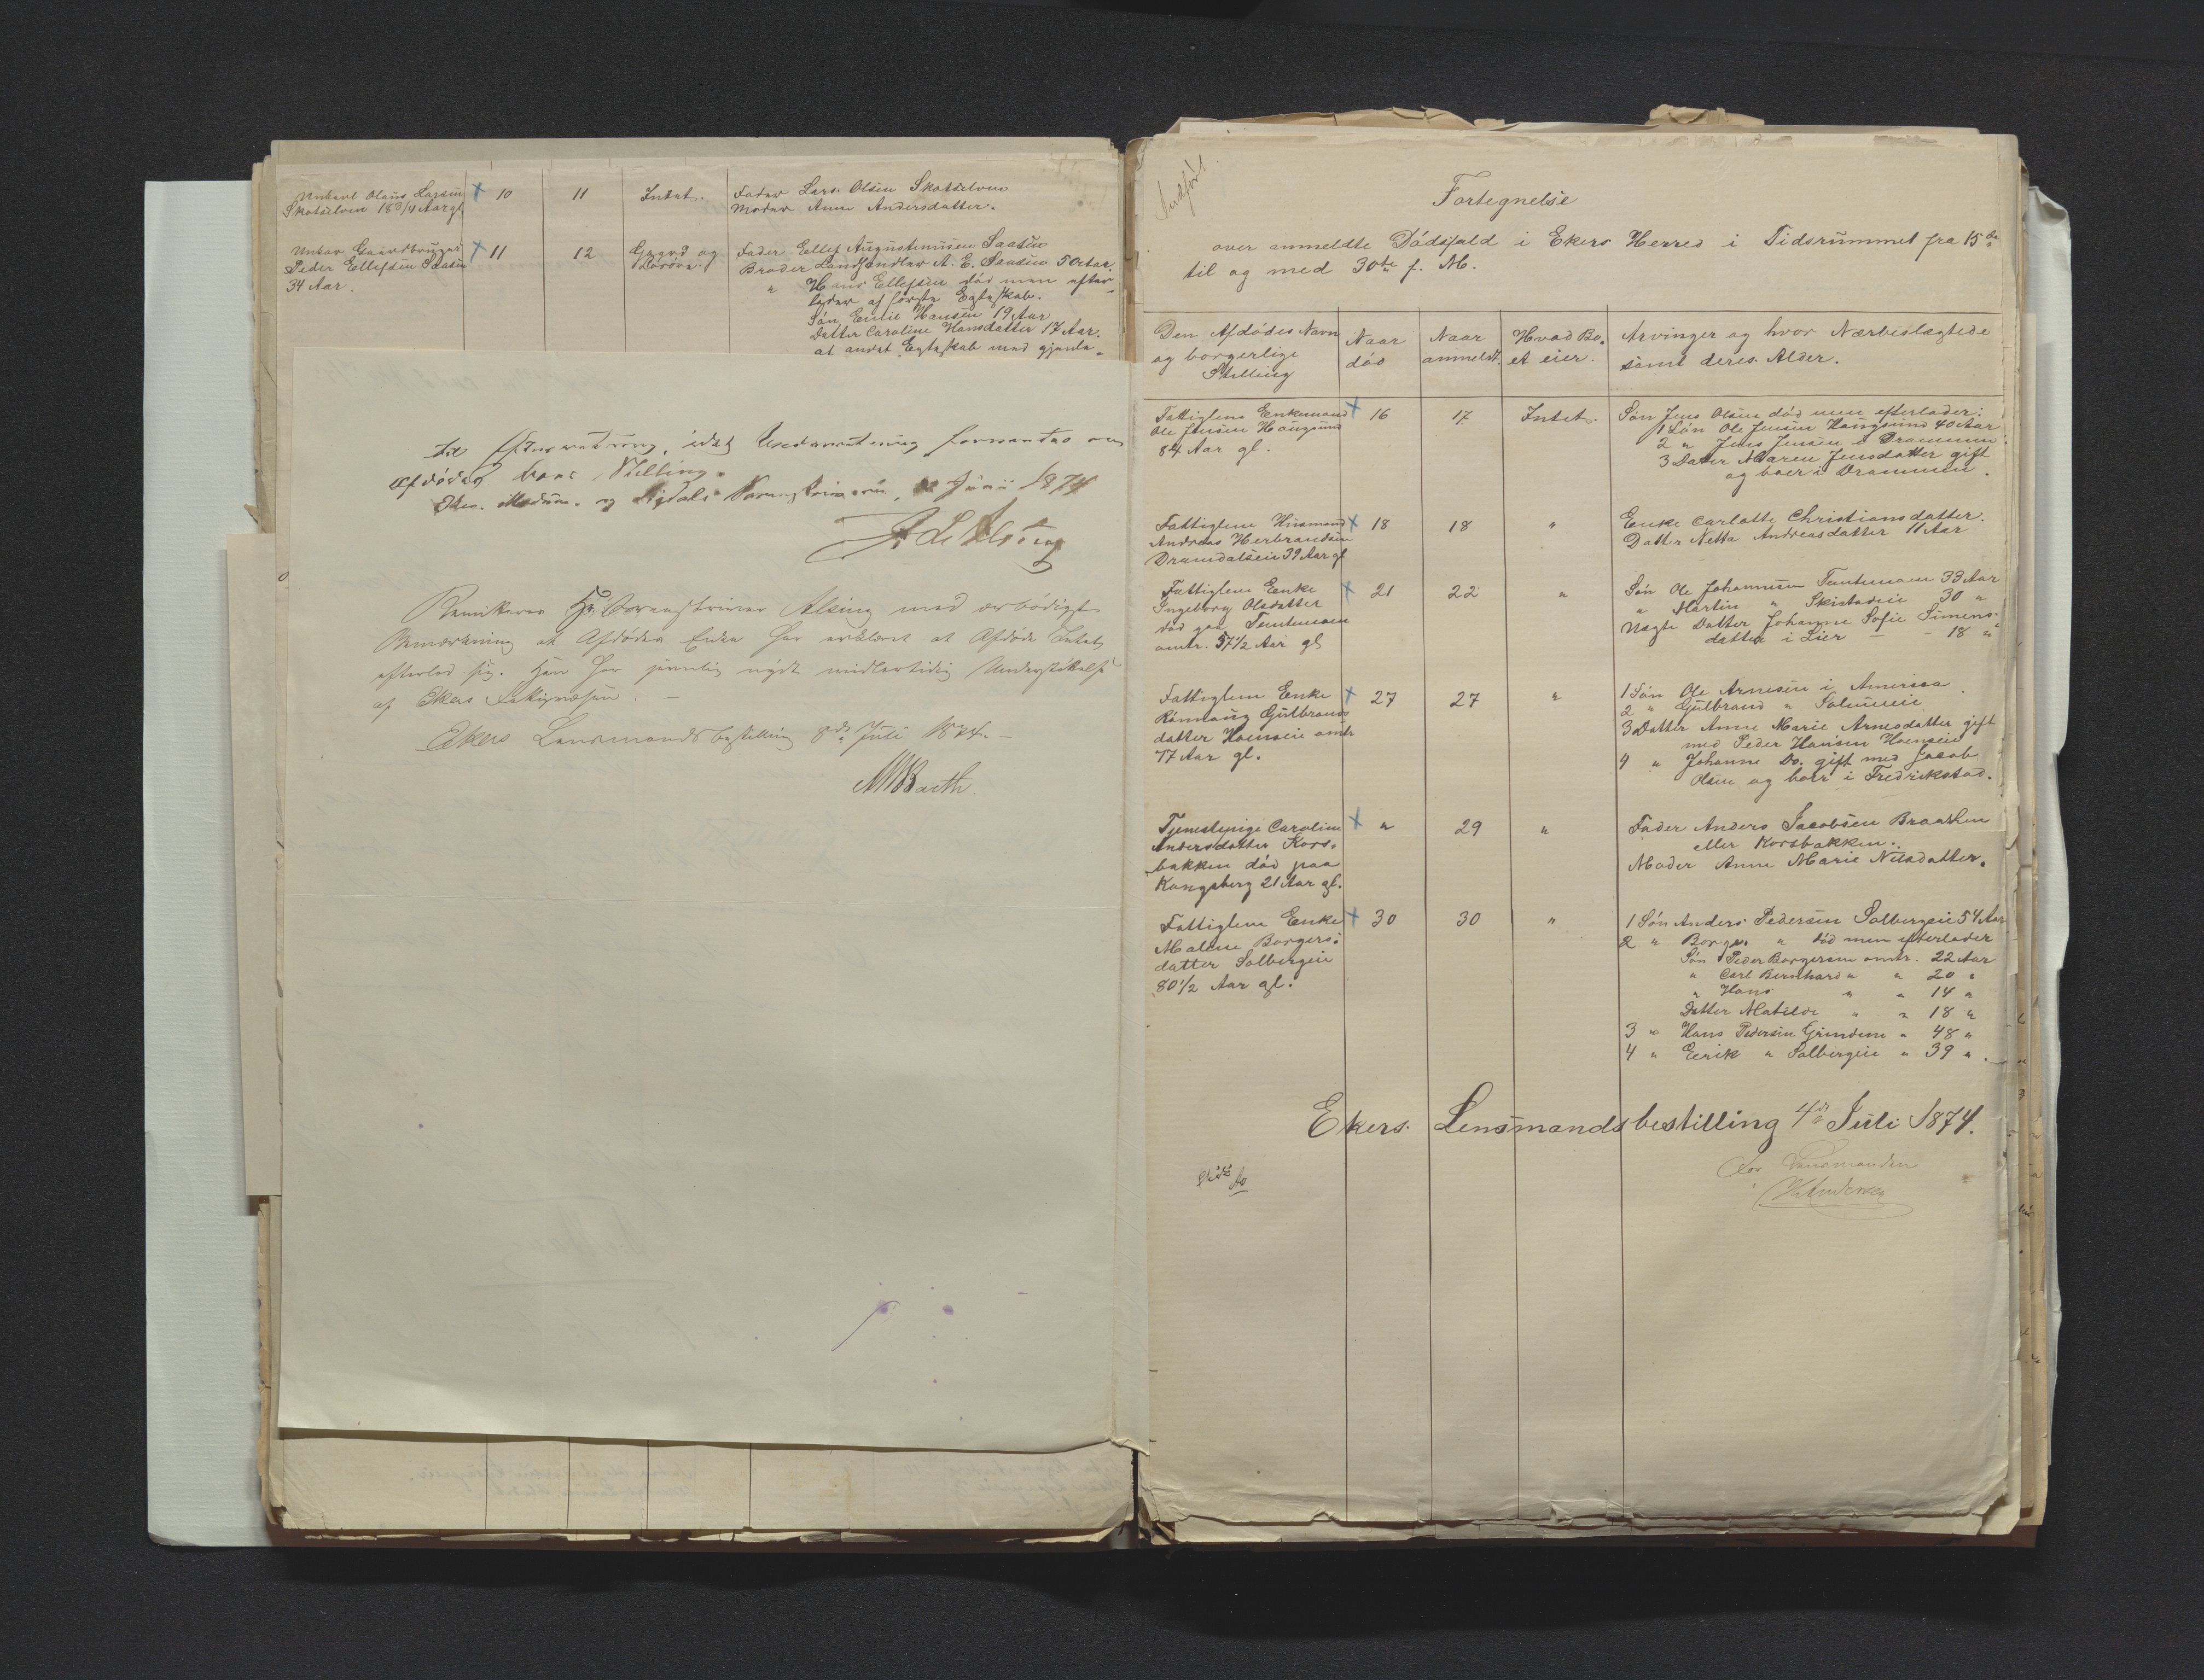 Unkarl Olaus Larsen
Skotselven 18 3/4 Aar gl
10 11 Intet.
Fader Lars Olsen Skotselven
Moder Anne Andersdatter.
Unkar Gaardbruger
Peder Ellefsen Saasen
34 Aar.
11 12 Gaard og
Løsøre.
Fader Ellef Augustinusen Saasen
Broder Landhandler A. E. Saasen 50 Aar.
" Hans Ellefsen død men efter-
lader af første Egteskab.
Søn Emil Hansen 19 Aar
Datter Caroline Hansdatter 17 Aar.
af andet Egteskab med gjenle-
Til Efterretning, idet Underretning forventes om
Afdødes Stilling.
Eker, Modum og Sigdals Sorenskriveri, Juni 1874
Alsing
Hr. Sorenskriver Alsing med ærbødigst
Bemærkning at Afdødes Enke har erklæret at Afdøde Intet
efterlod sig. Han har jevnlig nydt midlertidig Understøttelse
af Ekers Fattigvæsen. —
Ekers Lensmandsbestilling 8de Juli 1874. —
MBarth.
Indført
Fortegnelse
over anmeldte Dødsfald i Ekers Herred i Tidsrummet fra 15de
til og med 30te f. M.
Den Afdødes Navn
og borgerlige
Stilling
Naar
død
Naar
anmeldt.
Hvad Bo-
et eier.
Arvinger og hvor Nærbeslægtede
samt deres Alder.
Fattiglem Enkemand
Ole Jensen Hougsund
84 Aar gl.
16 17 Intet.
Søn Jens Olsen død men efterlader:
1 Søn Ole Jensen Hougsund 40 Aar
2 " Jens Jensen i Drammen.
3 Datter Maren Jensdatter gift
og boer i Drammen.
Fattiglem Husmand
Andreas Herbrandsen
Dramdalseie 39 Aar gl
18 18 "
Enke Carlotte Christiansdatter.
Datter Netta Andreasdatter 11 Aar
Fattiglem Enke
Ingeborg Olsdatter
død paa Temtemoen
omtr. 57 1/2 Aar gl
21 22 "
Søn Ole Johannesen Temtemoen 33 Aar
" Martin " Skistadeie 30 "
Uægte Datter Johanne Sofie Simens-
datter i Lier — - 18 "
Fattiglem Enke
Rønnaug Gulbrands
datter Hoenseie omtr
77 Aar gl.
27 27 "
1 Søn Ole Arnesen i America
2 " Gulbrand " Solumeie
3 Datter Anne Marie Arnesdatter gift
med Peder Hansen Hoenseie
4 " Johanne Do. gift med Jacob
Olsen og boer i Fredrikstad.
Tjenestepige Caroline
Andersdatter Kors-
bakken død paa
Kongsberg 21 Aar gl.
" 29 "
Fader Anders Jacobsen Braathen
eller Korsbakken.
Moder Anne Marie Nilsdatter.
Fattiglem Enke
Malene Borgers-
datter Solbergeie
80 1/2 Aar gl.
30 30 "
1 Søn Anders Pedersen Solbergeie 54 Aar
2 " Borger " død men efterlader
Søn Peder Borgersen omtr. 22 Aar
" Carl Bernhard " " 20 "
" Hans " " 14 "
Datter Matilde " " 18 "
3 " Hans Pedersen Grinden " 48 "
4 " Eerik " Solbergeie " 39 "
Ekers Lensmandsbestilling 4de Juli 1874.
For Lensmanden
HAndersen